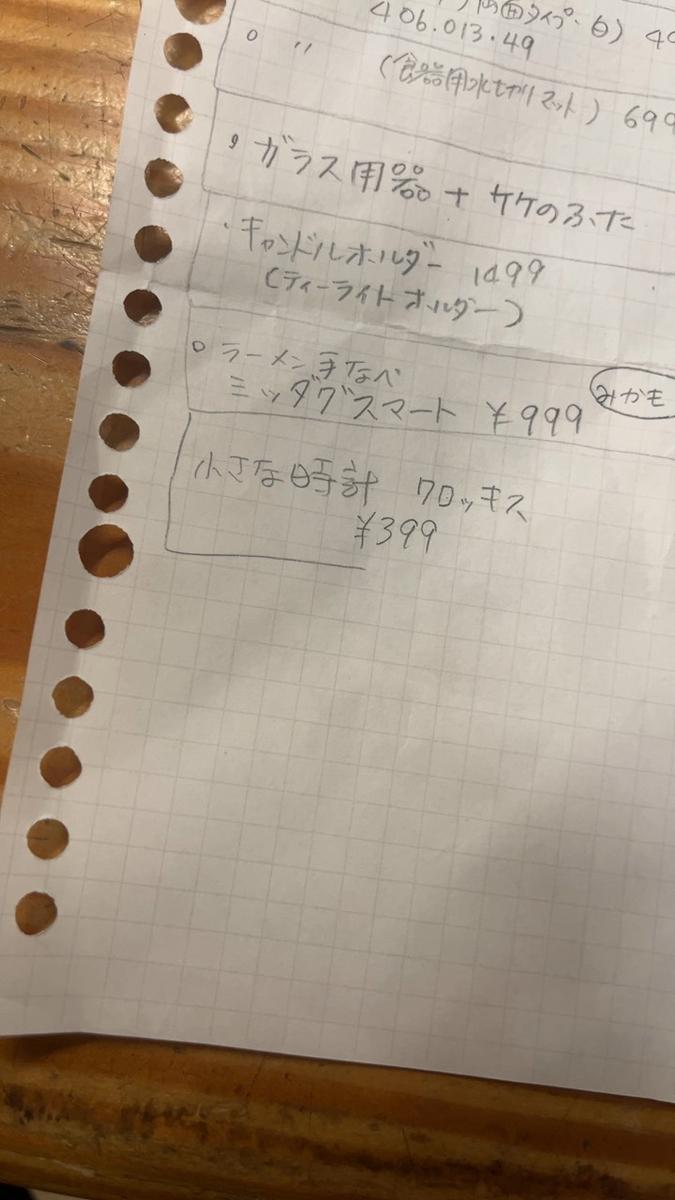 両面タイプ・白) 49
406.013.49
○ 〃 (食器用水切りマット) 699
・ガラス用器 + タケのふた
・キャンドルホルダー 1499
(ティーライトホルダー)
○ ラーメン手なべ
ミッダグスマート ¥999 みかも
小さな時計 フロッキス
¥399